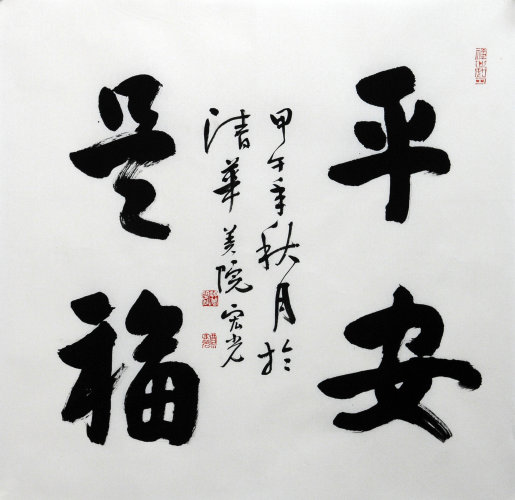 平安
是福
甲午年秋月於
清华美院宏光